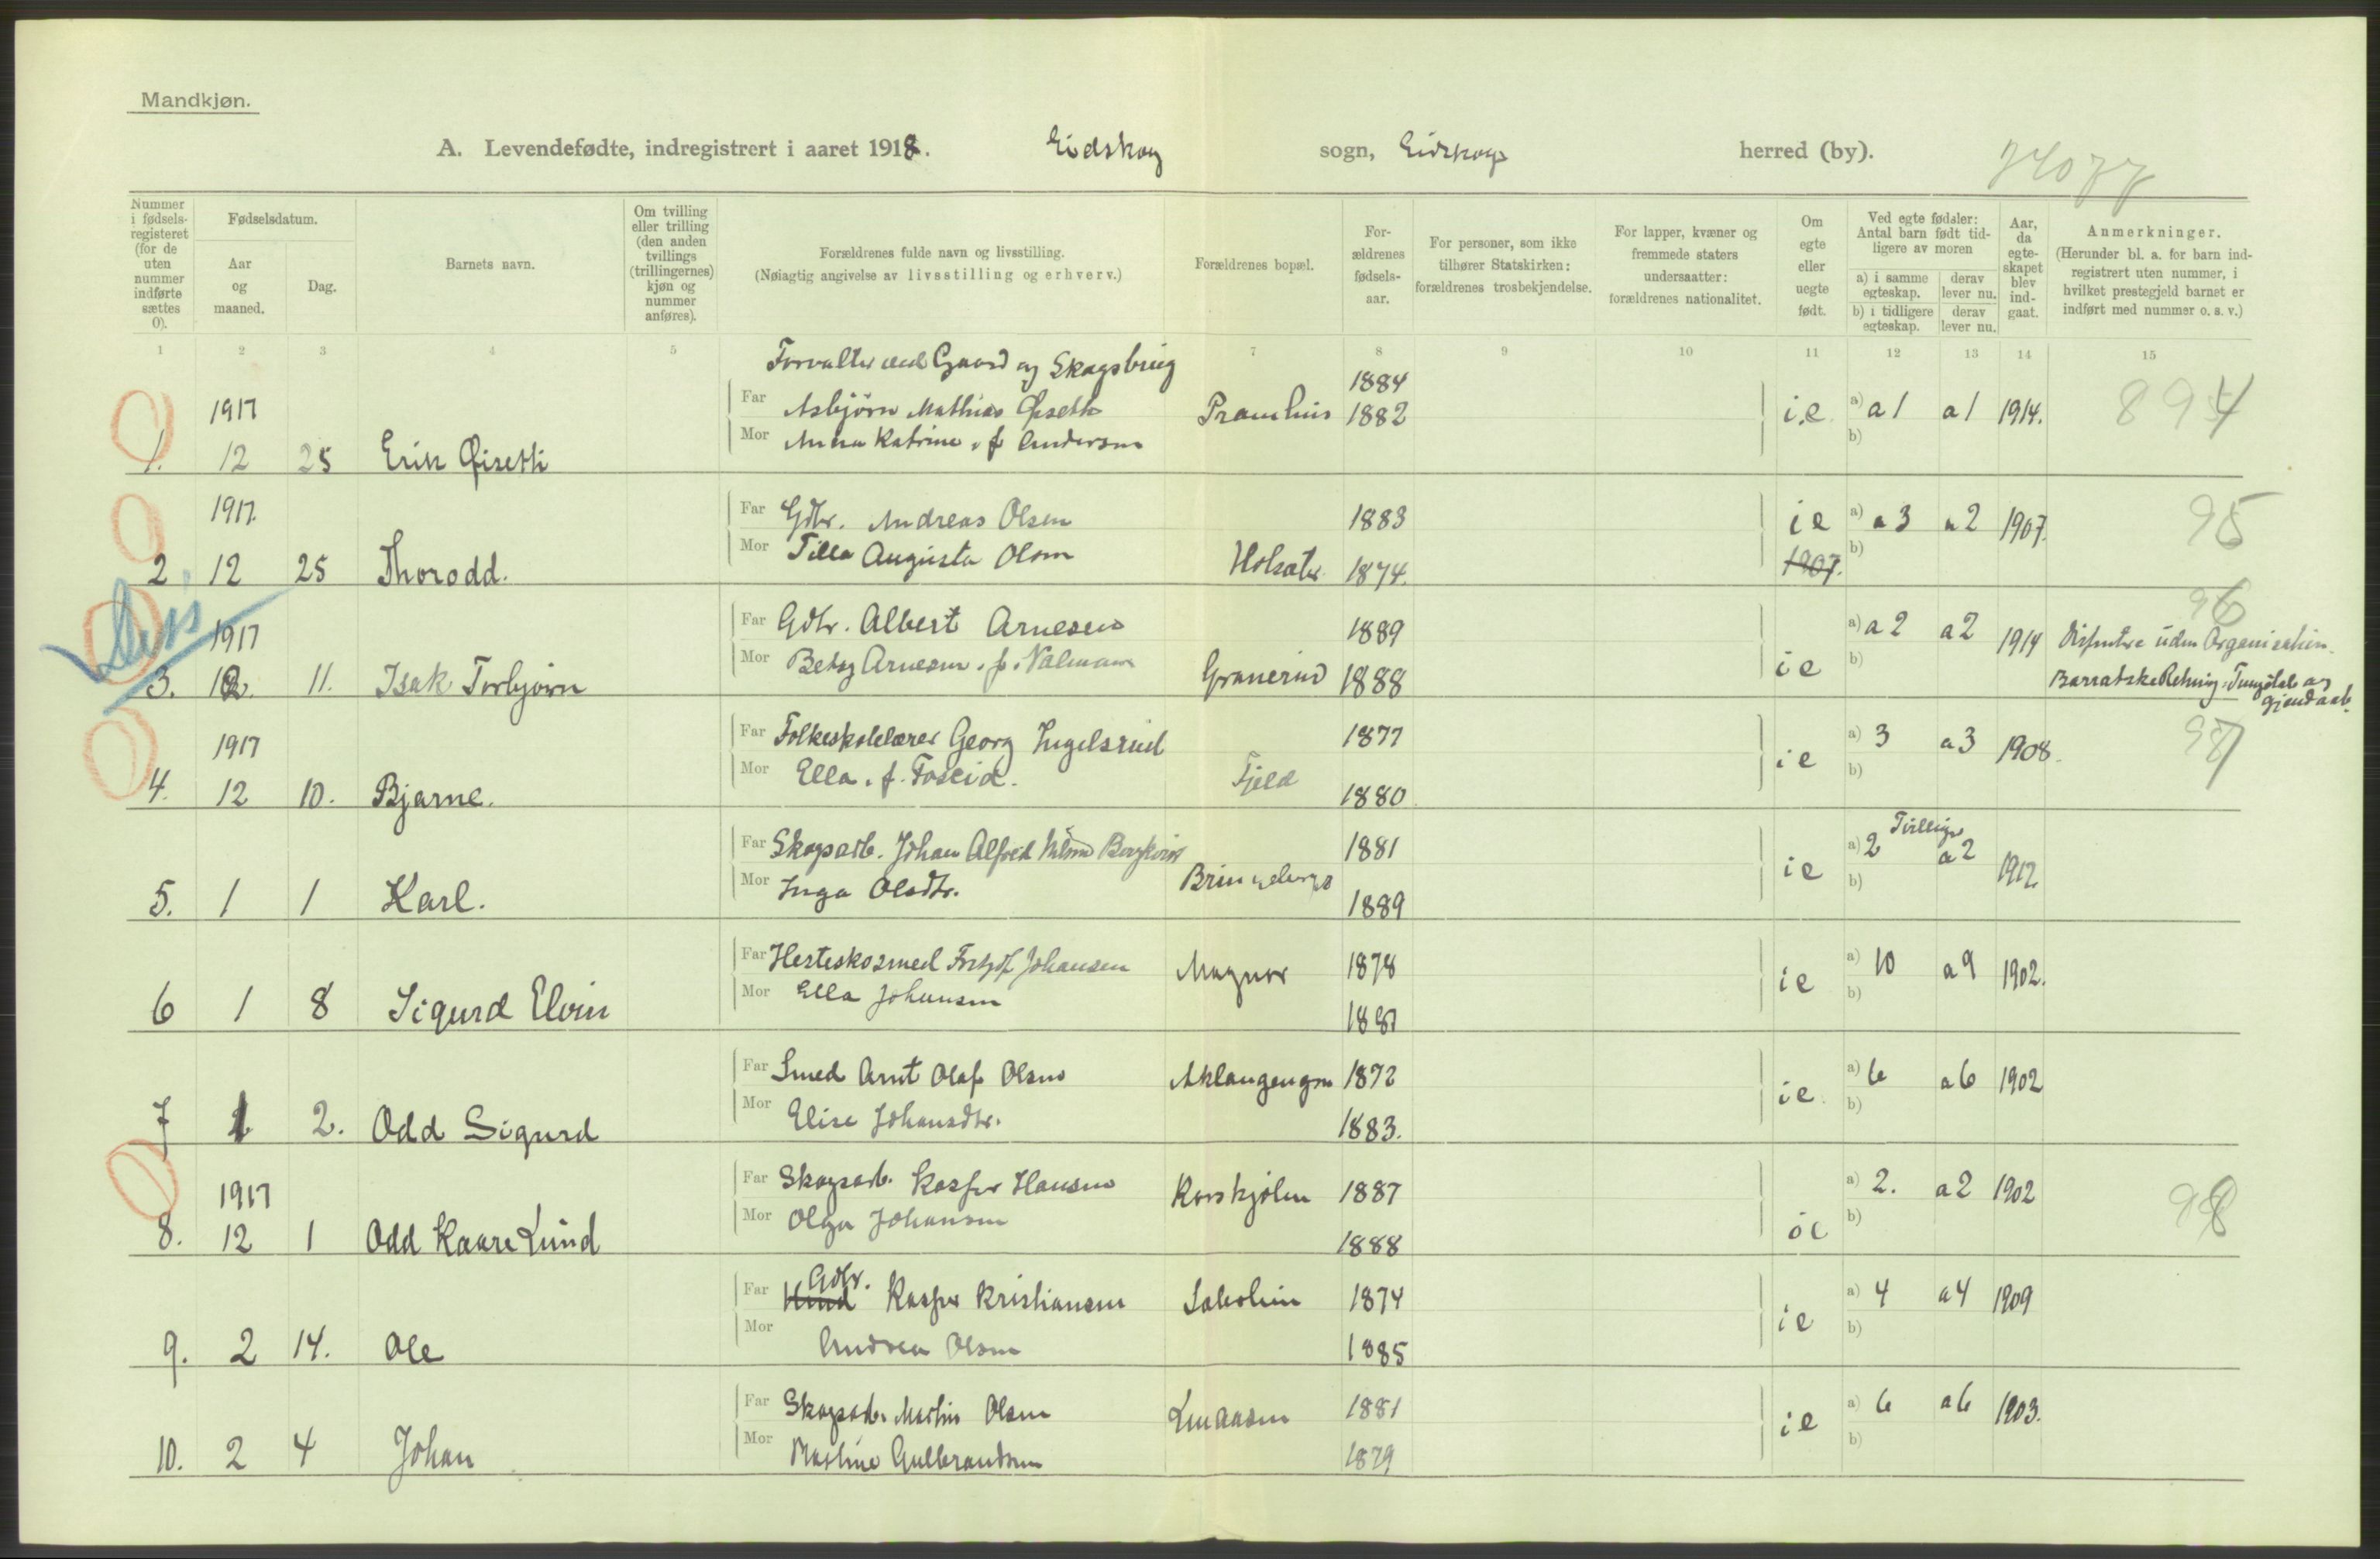 Mandkjøn.
A. Levendefødte, indregistrert i aaret 1918. Eidskog sogn, Eidskog herred (by).
Nummer i fødsels-registeret (for de uten nummer indførte sættes 0).
Fødselsdatum.
Aar og maaned.
Dag.
Barnets navn.
Om tvilling eller trilling (den anden tvillings (trillingernes) kjøn og nummer anføres).
Forældrenes fulde navn og livsstilling.
(Nøiagtig angivelse av livsstilling og erhverv.)
Forældrenes bopæl.
For-ældrenes fødsels-aar.
For personer, som ikke tilhører Statskirken: forældrenes trosbekjendelse.
For lapper, kvæner og fremmede staters undersaatter: forældrenes nationalitet.
Om egte eller uegte født.
Ved egte fødsler: Antal barn født tid-ligere av moren
a) i samme egteskap. derav lever nu.
b) i tidligere egteskap. derav lever nu.
Aar, da egte-skapet blev ind-gaat.
Anmerkninger.
(Herunder bl. a. for barn ind-registrert uten nummer, i hvilket prestegjeld barnet er indført med nummer o. s. v.)
1 2 3 4 5 7 8 9 10 11 12 13 14 15
Forvalter ved Gaard og Skogsbrug
1884
1917 Far Asbjørn Mathias Øiseth Pramhus 1882 i.e. a) a 1 a 1 1914. 894
Mor Anna Katrine, f. Andersen b)
1. 12 25 Erik Øiseth
1917. Far Gdbr. Andreas Olsen 1883 i e a) a 3 a 2 1907. 95
Mor Tilla Augusta Olsen b)
2. 12 25 Thorodd. 1874. 1907.
96
1917 Far Gdbr. Albert Arnesen 1889 a) a 2 a 2 1914
Mor Betsy Arnesen, f. b)
3. 12. 11. Isak Torbjørn Granerud 1888 i e
1917 Far Folkeskolelærer Georg Ingelsrud 1877 a) 3 a 3 1908. 97
Mor Ella, f. Fjeld i e b)
4. 12 10. Bjarne. 1880.
Far Skogsarb. Johan Alfred 1881 a) 2 Tvillinger a 2 1912.
Mor Inga Olsdtr. i e b)
5. 1 1 Karl. 1889
Far Hesteskosmed Fritjof Johansen Magnor 1878 a) 10 a 9 1902.
Mor Ella Johansen i e b)
6 1 8 Sigurd Elvin
Far Smed Arnt Olaf Olsen 1872 a) 6 a 6 1902
Mor Elise Johansdtr. i e b)
7 1 2. Odd Sigurd 1883.
1917 Far Skogsarb. Kasper Hansen 1887 a) 2. a 2 1902 98
Mor Olga Johansen b)
8. 12 1 Odd Kaare Lund 1888
Gdbr.
Far Kasper Kristiansen 1874 a) 4 a 4 1909
Mor Andrea Olsen i e b)
9. 2 14. Ole 1885
Far Skogsarb. Martin Olsen 1881 a) 6 a 6 1903.
Mor Mathine Gulbrandsen i e b)
10. 2 4 Johan 1879